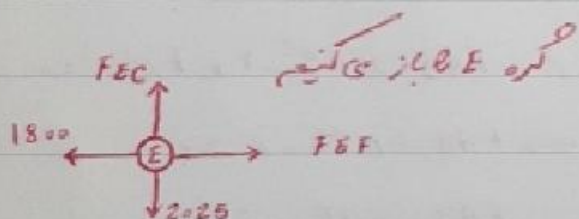 گره E را باز می‌کنیم
FEC
1800
E
FEF
2025